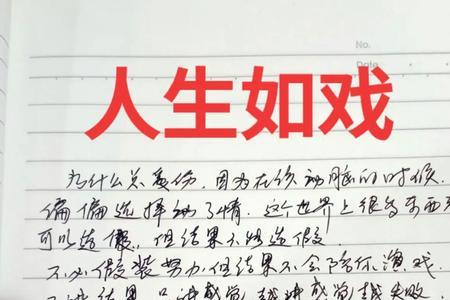 No.
Date
人生如戏
为什么总受伤，因为在该动脑的时候，
偏偏选择动了情。这个世界上很多东西
可以造假，但结果不能造假
不必假装努力，但结果不会陪你演戏